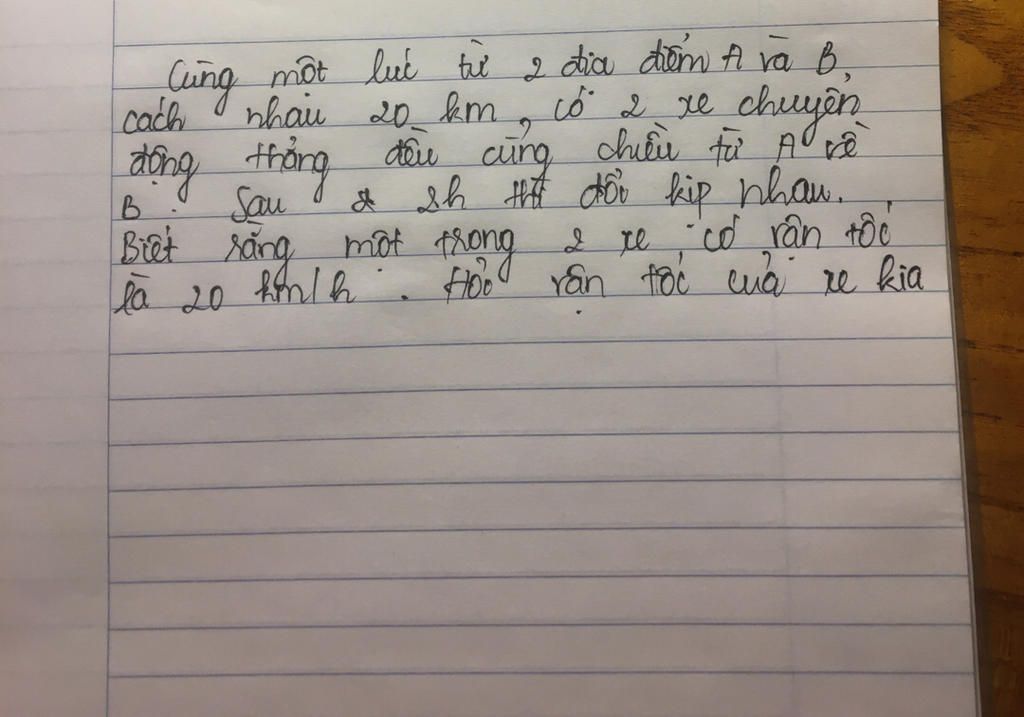 Cùng một lúc từ 2 địa điểm A và B,
cách nhau 20 km, có 2 xe chuyển
động thẳng đều cùng chiều từ A về
B. Sau 2h thì đổi kịp nhau.
Biết rằng một trong 2 xe có vận tốc
là 20 km/h. Hỏi vận tốc của xe kia